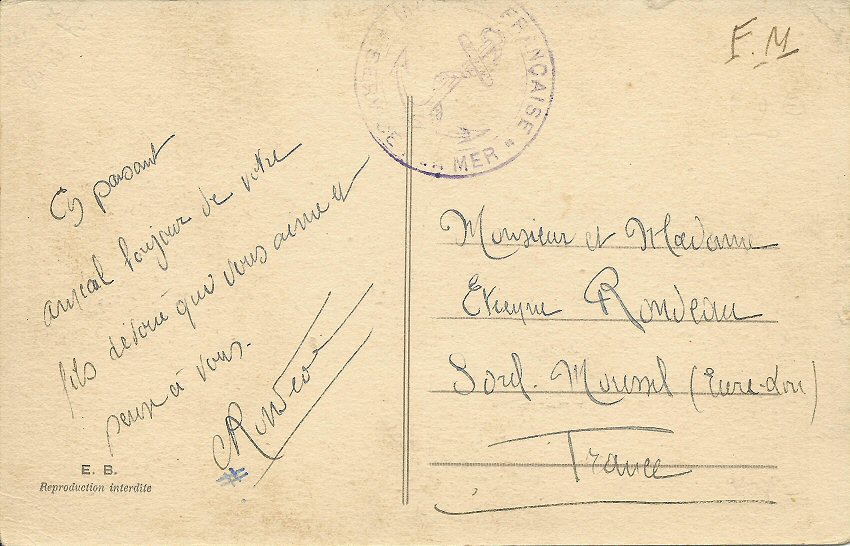 F.M
MARINE FRANÇAISE
SERVICE A LA MER
En passant
amical bonjour de votre
fils dévoué qui vous aime et
pense à vous.
Rondeau
E. B.
Reproduction interdite
Monsieur et Madame
Etienne Rondeau
Sorel. Moussel (Eure-et-Loir)
France